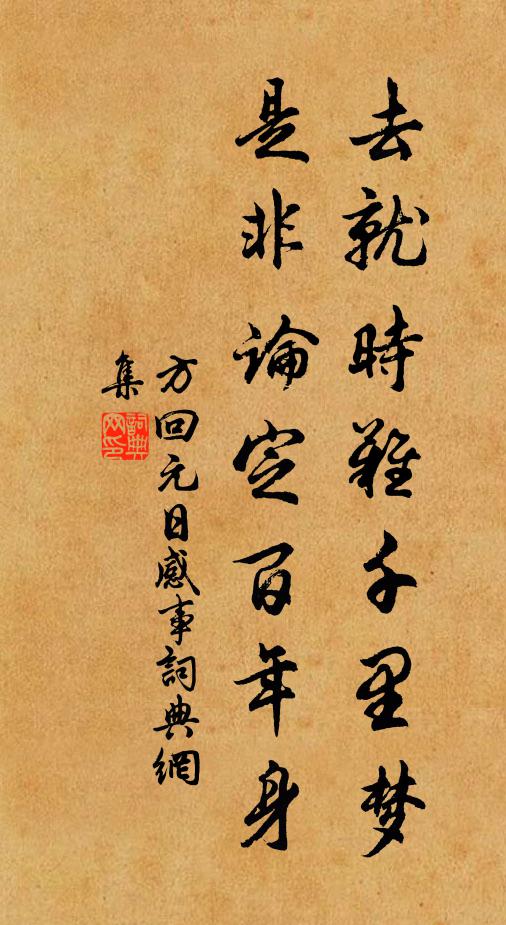 去就時難千里梦
是非論定百年身
方回元日感事詞典網
集
詞典网印